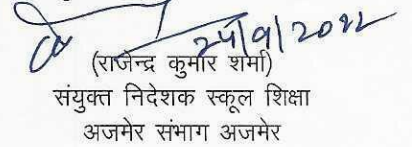 24/9/2022
(राजेन्द्र कुमार शर्मा)
संयुक्त निदेशक स्कूल शिक्षा
अजमेर संभाग अजमेर